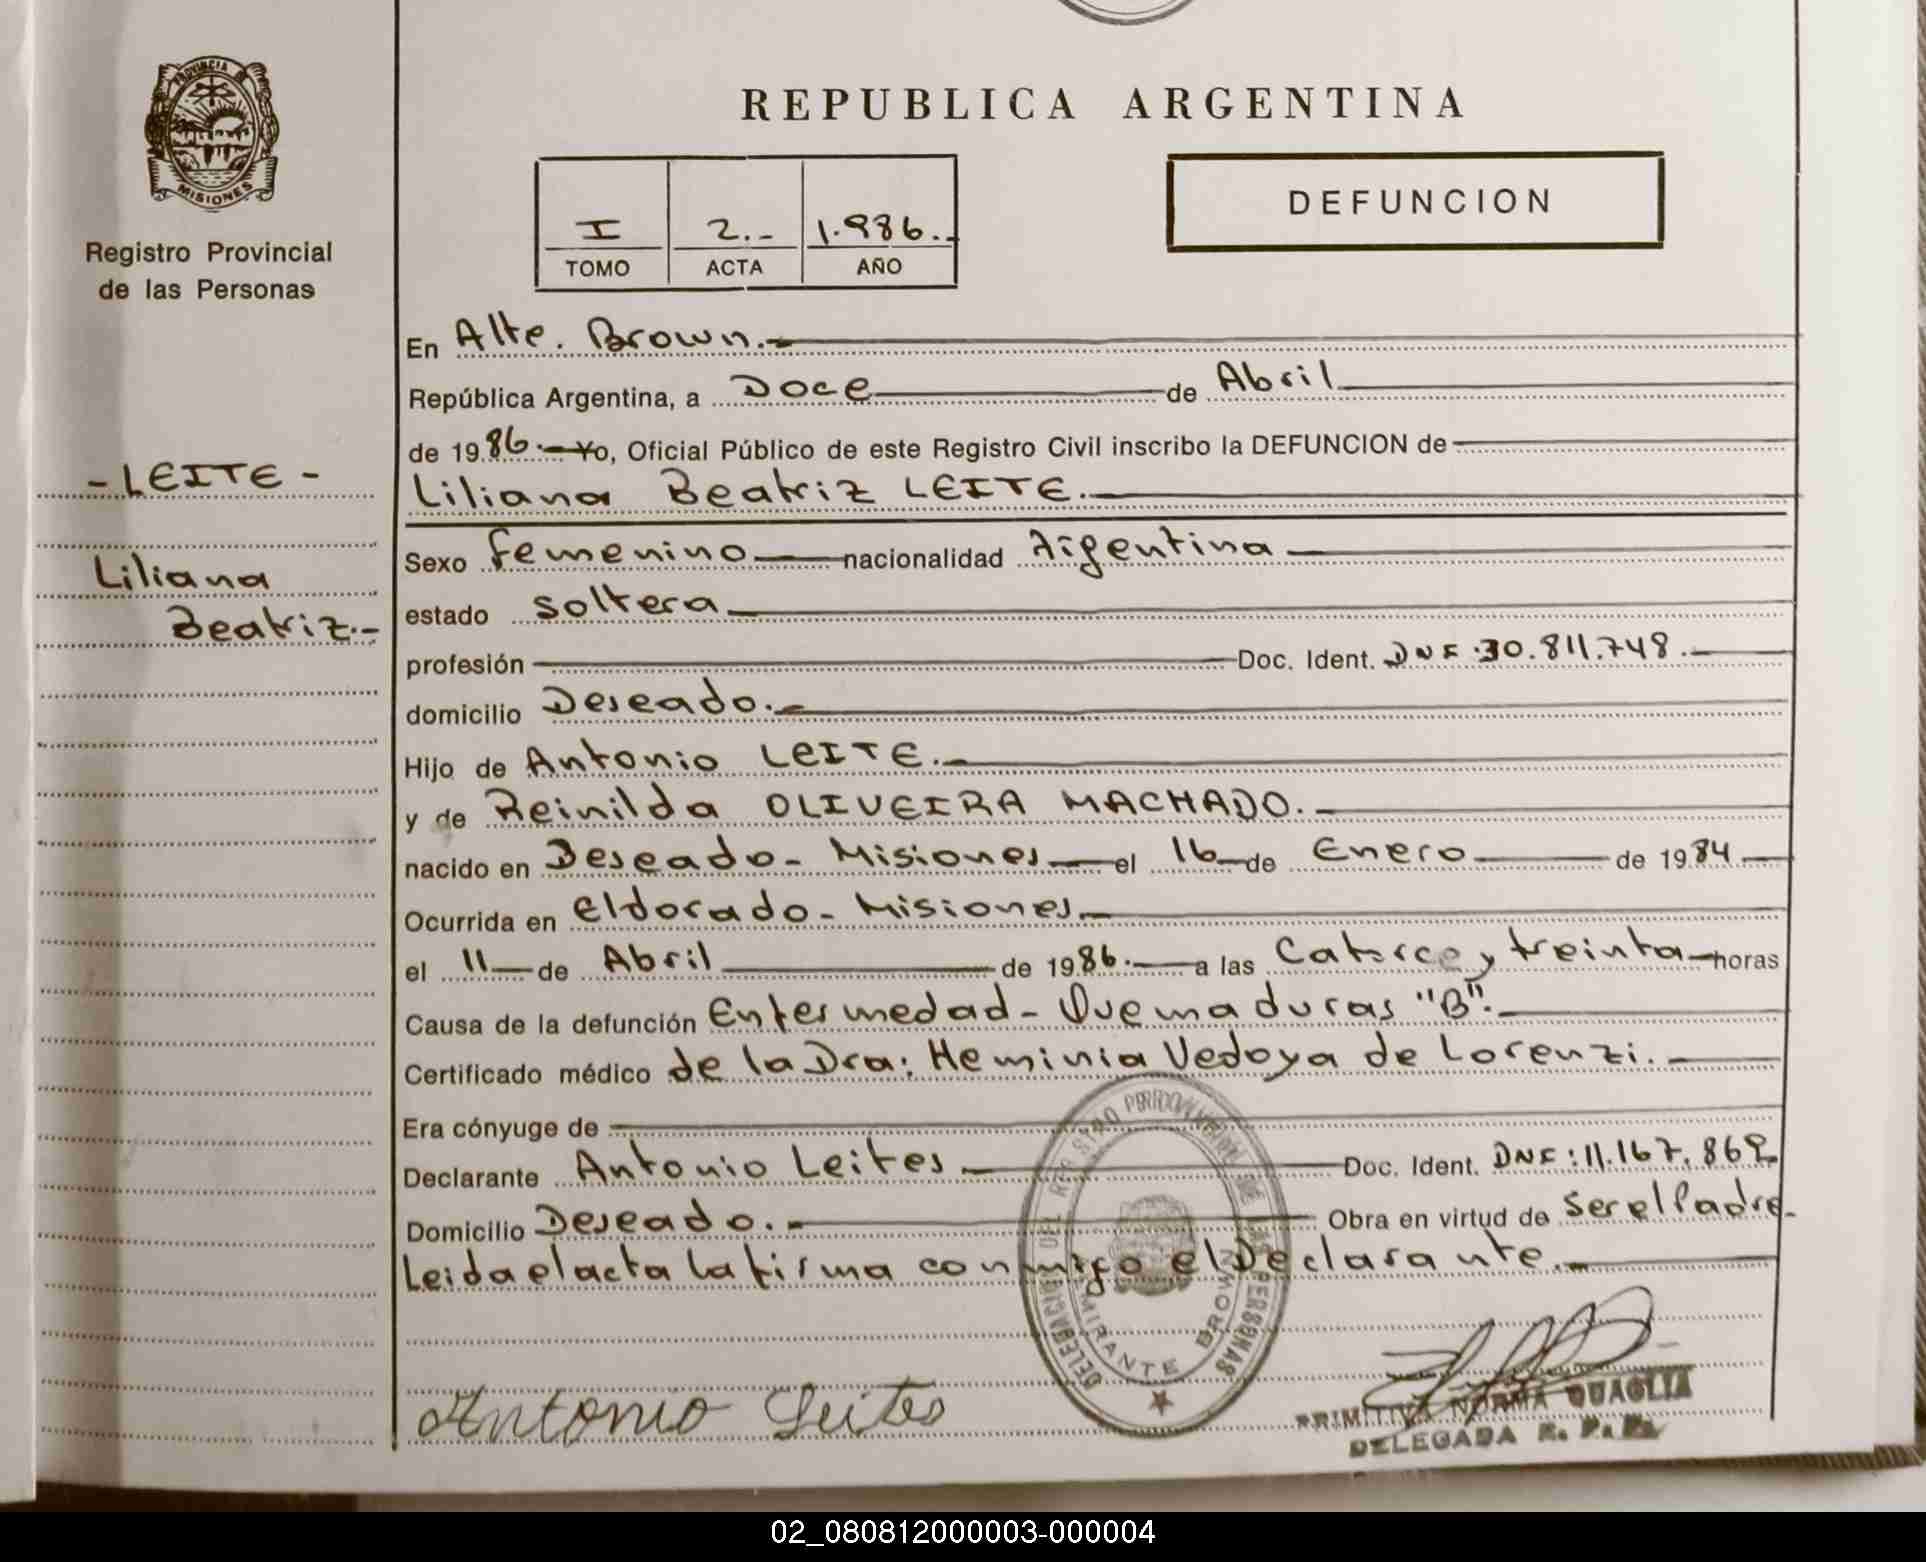 PROVINCIA DE
MISIONES
Registro Provincial
de las Personas
- LEITE -
Liliana
Beatriz.-
REPUBLICA ARGENTINA
I 2.- 1.986.-
TOMO ACTA AÑO
DEFUNCION
En Alte. Brown.-
República Argentina, a Doce de Abril
de 1986.- Yo, Oficial Público de este Registro Civil inscribo la DEFUNCION de
Liliana Beatriz LEITE.-
Sexo femenino nacionalidad Argentina
estado soltera
profesión Doc. Ident. DNI: 30.811.748.-
domicilio Deseado.-
Hijo de Antonio LEITE.-
y de Reinilda OLIVEIRA MACHADO.-
nacido en Deseado- Misiones el 16 de Enero de 1984
Ocurrida en Eldorado- Misiones.-
el 11 de Abril de 1986.- a las Catorce y treinta horas
Causa de la defunción Enfermedad- Quemaduras "B".-
Certificado médico de la Dra: Heminia Vedoya de Lorenzi.-
Era cónyuge de
Declarante Antonio Leites.- Doc. Ident. DNI: 11.167.869
Domicilio Deseado.- Obra en virtud de Ser el Padre-
Leida el acta la firma conmigo el Declarante.-
DELEGACION DEL REGISTRO PROVINCIAL DE LAS PERSONAS
ALMIRANTE BROWN
Antonio Leites
PRIMITIVA NORMA QUAGLIA
DELEGADA R. P. P.
02_080812000003-000004